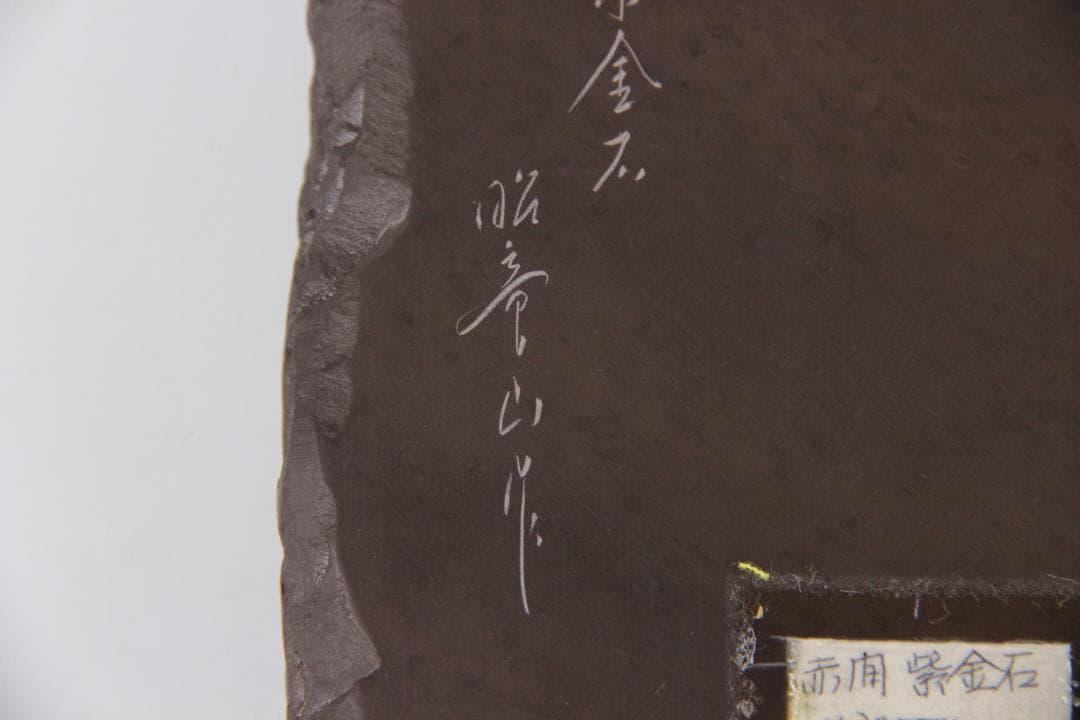 金石
昭竜山作
赤間 紫金石